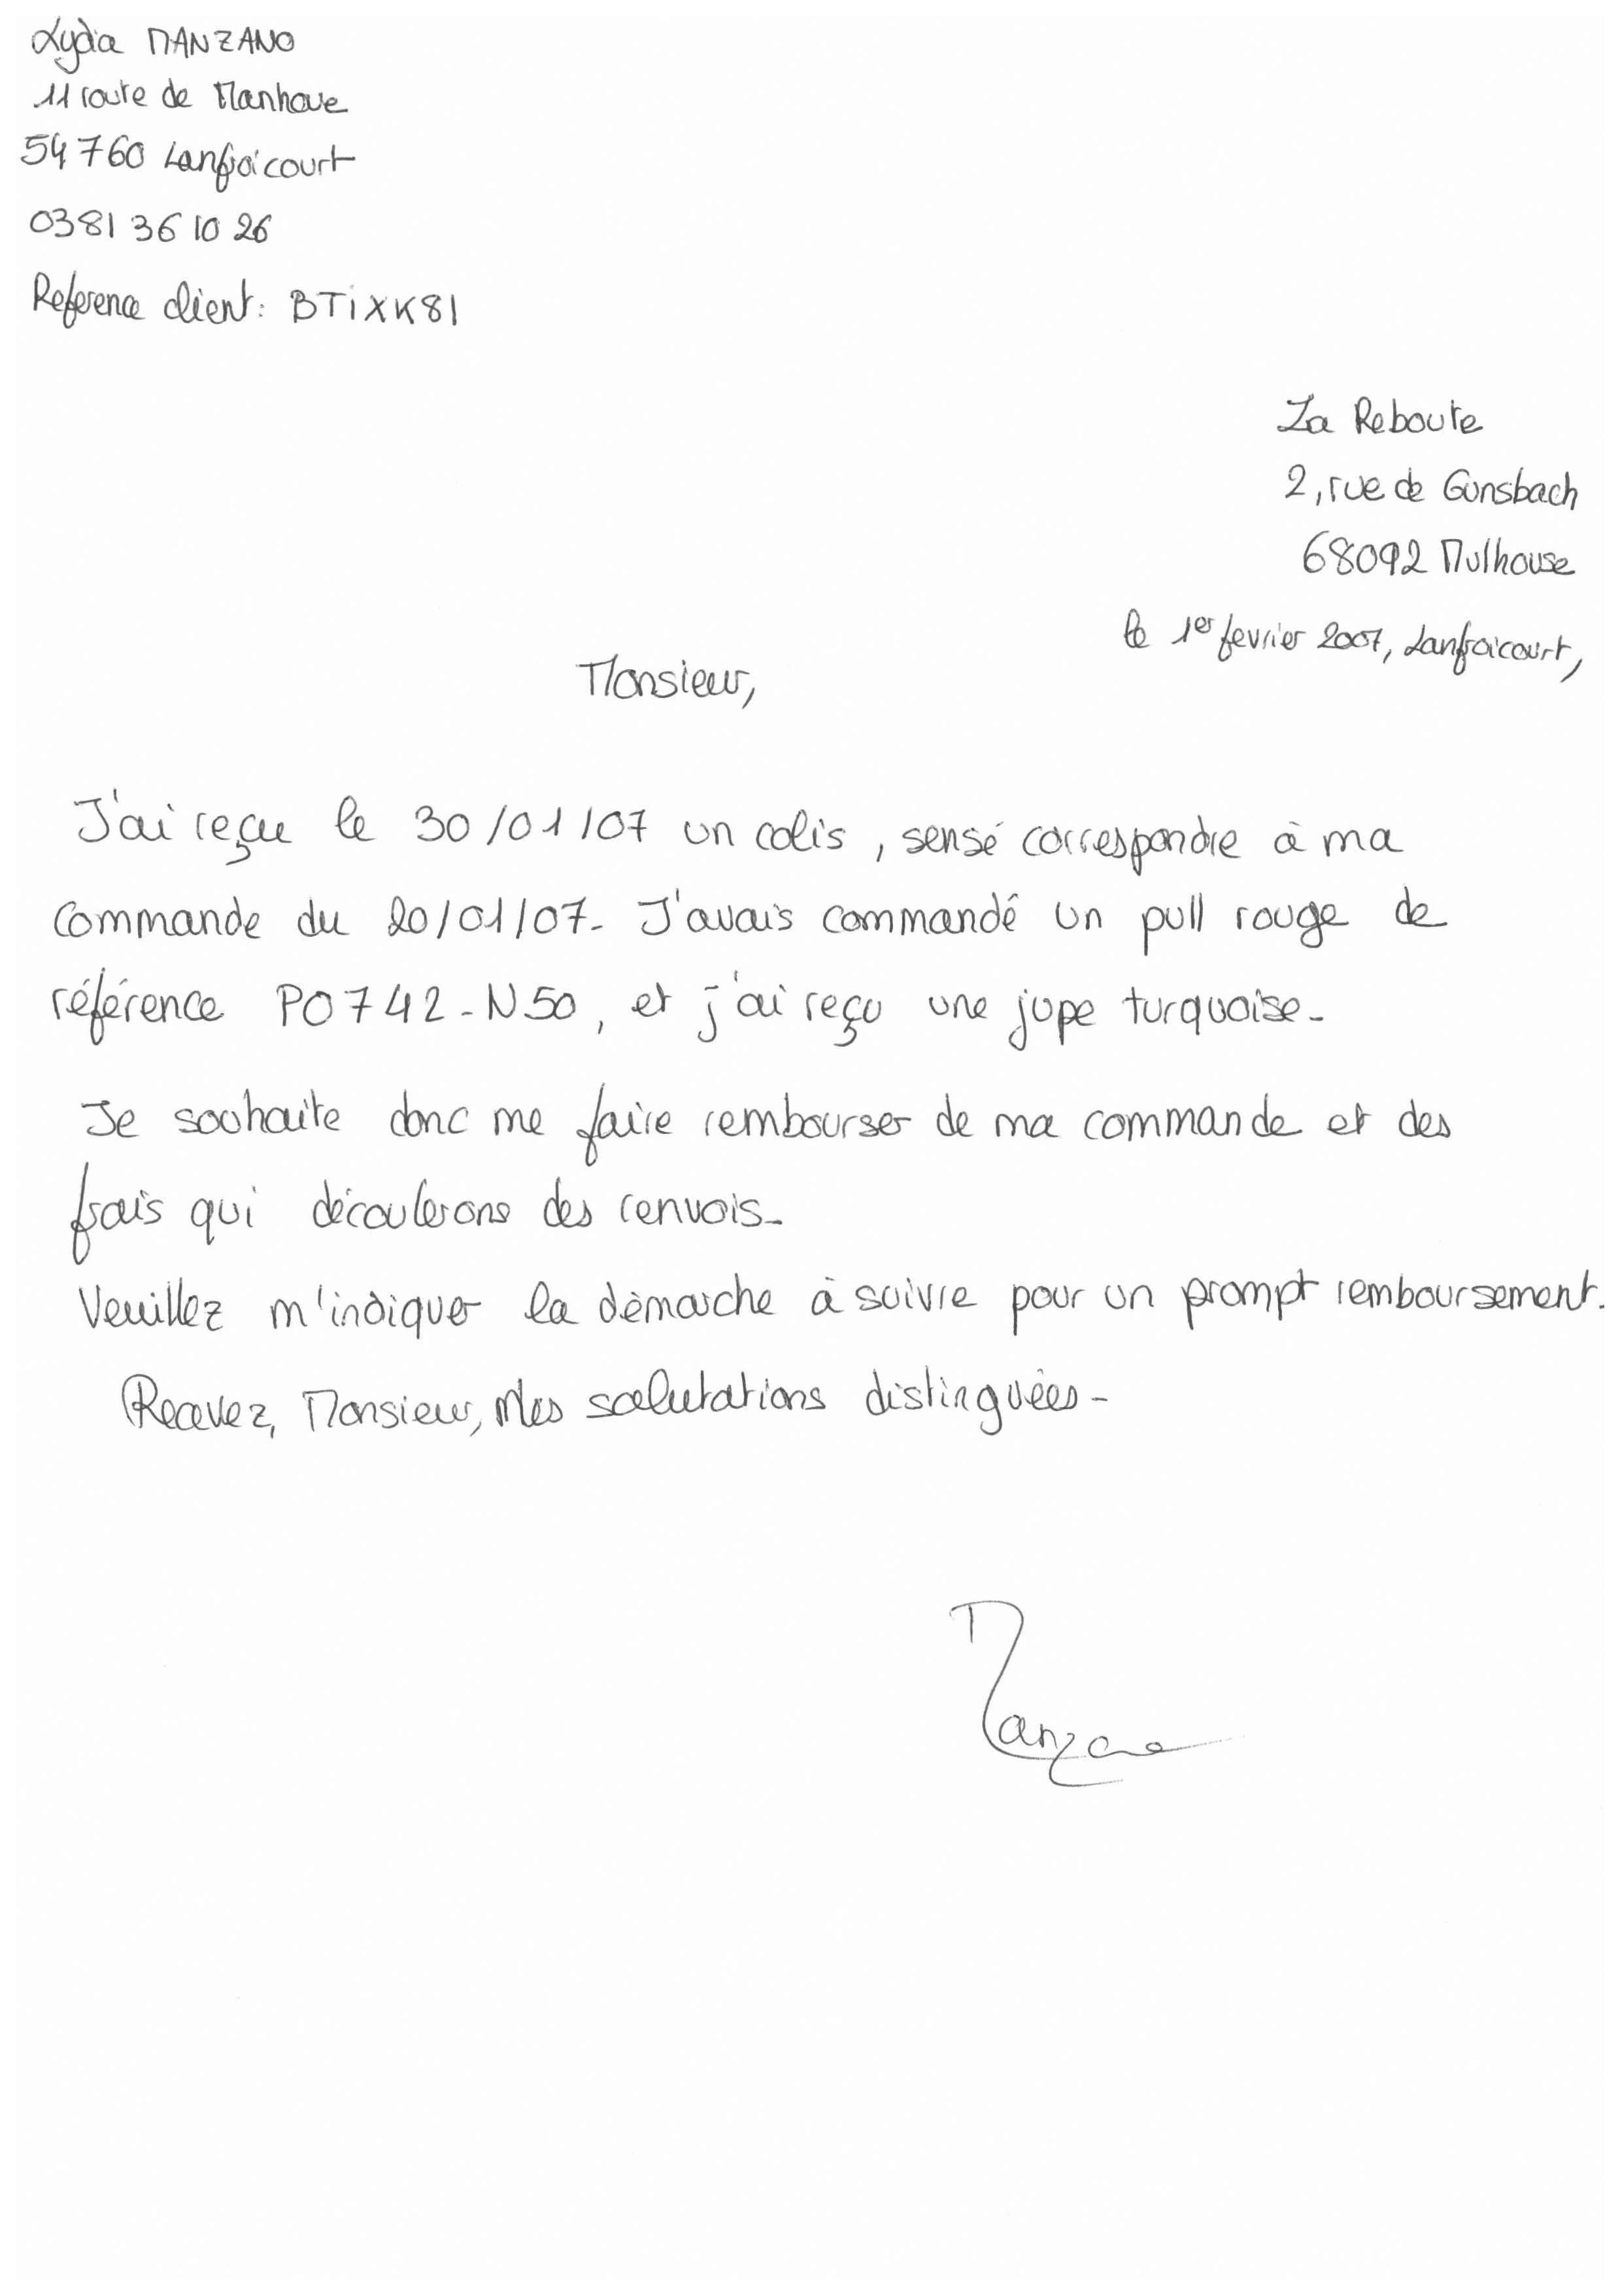 Lydia MANZANO
11 route de Manhoue
54760 Lanfroicourt
03 81 36 10 26
Reference client: BTiXK81
La Reboute
2, rue de Gunsbach
68092 Mulhouse
le 1er fevrier 2007, Lanfroicourt,
Monsieur,
J'ai reçu le 30/01/07 un colis, sensé correspondre à ma
commande du 20/01/07. J'avais commandé un pull rouge de
référence PO742-N50, et j'ai reçu une jupe turquoise.
Je souhaite donc me faire rembourser de ma commande et des
frais qui découlerons des renvois.
Veuillez m'indiquer la démarche à suivre pour un prompt remboursement.
Recevez, Monsieur, Mes salutations distinguées.
Manzano